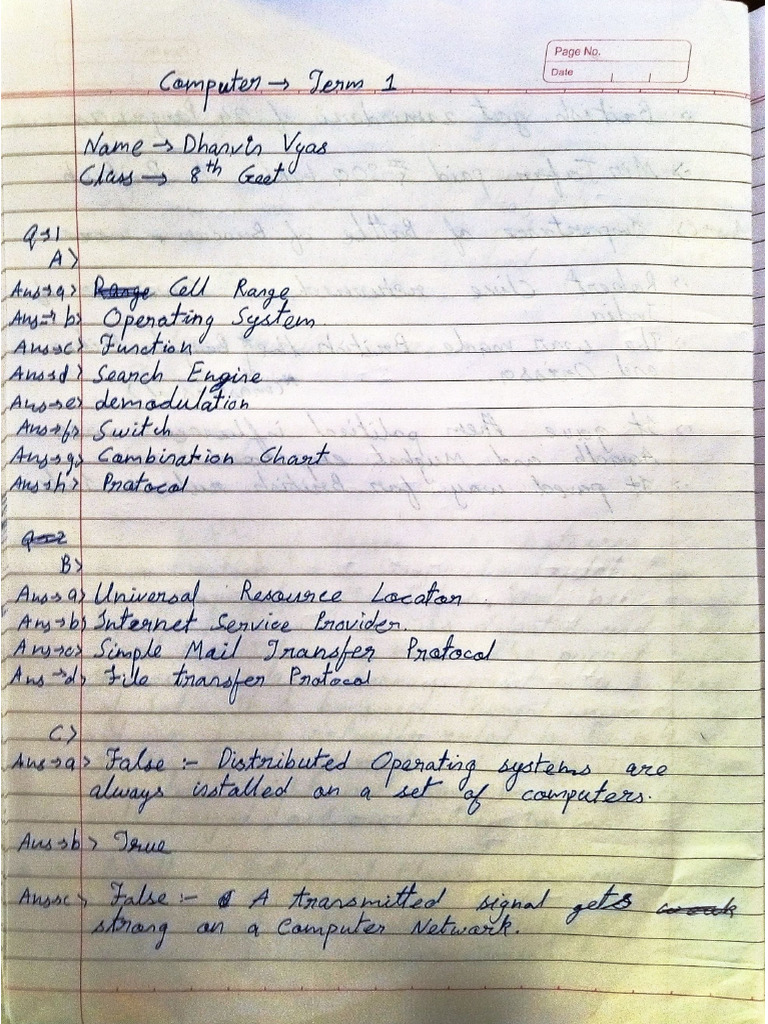 Page No.
Date
Computer → Term 1
Name → Dhanvin Vyas
Class → 8th Geet
Q→1
A>
Ans→a> Range Cell Range
Ans→b> Operating System
Ans→c> Function
Ans→d> Search Engine
Ans→e> demodulation
Ans→f> Switch
Ans→g> Combination Chart
Ans→h> Protocol
Q→2
B>
Ans→a> Universal Resource Locator
Ans→b> Internet Service Provider.
Ans→c> Simple Mail Transfer Protocol
Ans→d> File transfer Protocol
C>
Ans→a> False :- Distributed Operating systems are
always installed on a set of computers.
Ans→b> True
Ans→c> False :- A transmitted signal gets weak
strong on a Computer Network.